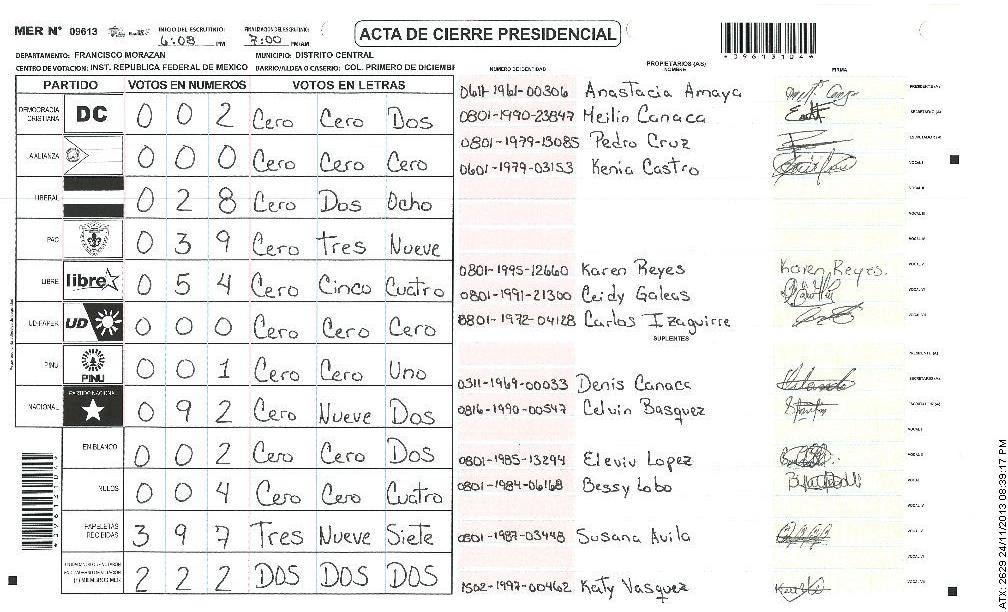 MER N° 09613 INICIO DEL ESCRUTINIO: 6:08 PM FINALIZACION DEL ESCRUTINIO: 7:00 PM/AM ACTA DE CIERRE PRESIDENCIAL *09613104*
DEPARTAMENTO: FRANCISCO MORAZAN MUNICIPIO: DISTRITO CENTRAL
CENTRO DE VOTACION: INST. REPUBLICA FEDERAL DE MEXICO BARRIO/ALDEA O CASERIO: COL. PRIMERO DE DICIEMBR
PARTIDO VOTOS EN NUMEROS VOTOS EN LETRAS
DEMOCRACIA CRISTIANA DC 0 0 2 Cero Cero Dos
LA ALIANZA 0 0 0 Cero Cero Cero
LIBERAL 0 2 8 Cero Dos Ocho
PAC 0 3 9 Cero Tres Nueve
LIBRE libre 0 5 4 Cero Cinco Cuatro
UD-FAPER UD 0 0 0 Cero Cero Cero
PINU PINU 0 0 1 Cero Cero Uno
NACIONAL PARTIDO NACIONAL 0 9 2 Cero Nueve Dos
EN BLANCO 0 0 2 Cero Cero Dos
NULOS 0 0 4 Cero Cero Cuatro
PAPELETAS RECIBIDAS 3 9 7 Tres Nueve Siete
2 2 2 DOS DOS DOS
NUMERO DE IDENTIDAD PROPIETARIOS (AS) NOMBRE FIRMA
0611-1961-00306 Anastacia Amaya PRESIDENTE (A)
0801-1990-23847 Meilin Canaca SECRETARIO (A)
0801-1979-13085 Pedro Cruz ESCRUTADOR (A)
0601-1979-03153 Kenia Castro VOCAL I
VOCAL II
VOCAL III
VOCAL IV
0801-1995-12660 Karen Reyes Karen Reyes. VOCAL V
0801-1991-21300 Ceidy Galeas VOCAL VI
0801-1972-04128 Carlos Izaguirre VOCAL VII
SUPLENTES
PRESIDENTE (A)
0311-1969-00033 Denis Canaca SECRETARIO (A)
0816-1990-00547 Celvin Basquez ESCRUTADOR (A)
VOCAL I
0801-1985-13294 Eleviu Lopez VOCAL II
0801-1984-06168 Bessy Lobo VOCAL III
VOCAL IV
0801-1987-03448 Susana Avila VOCAL V
VOCAL VI
1502-1997-00462 Katy Vasquez VOCAL VII
ATX: 2629 24/11/2013 08:39:17 PM